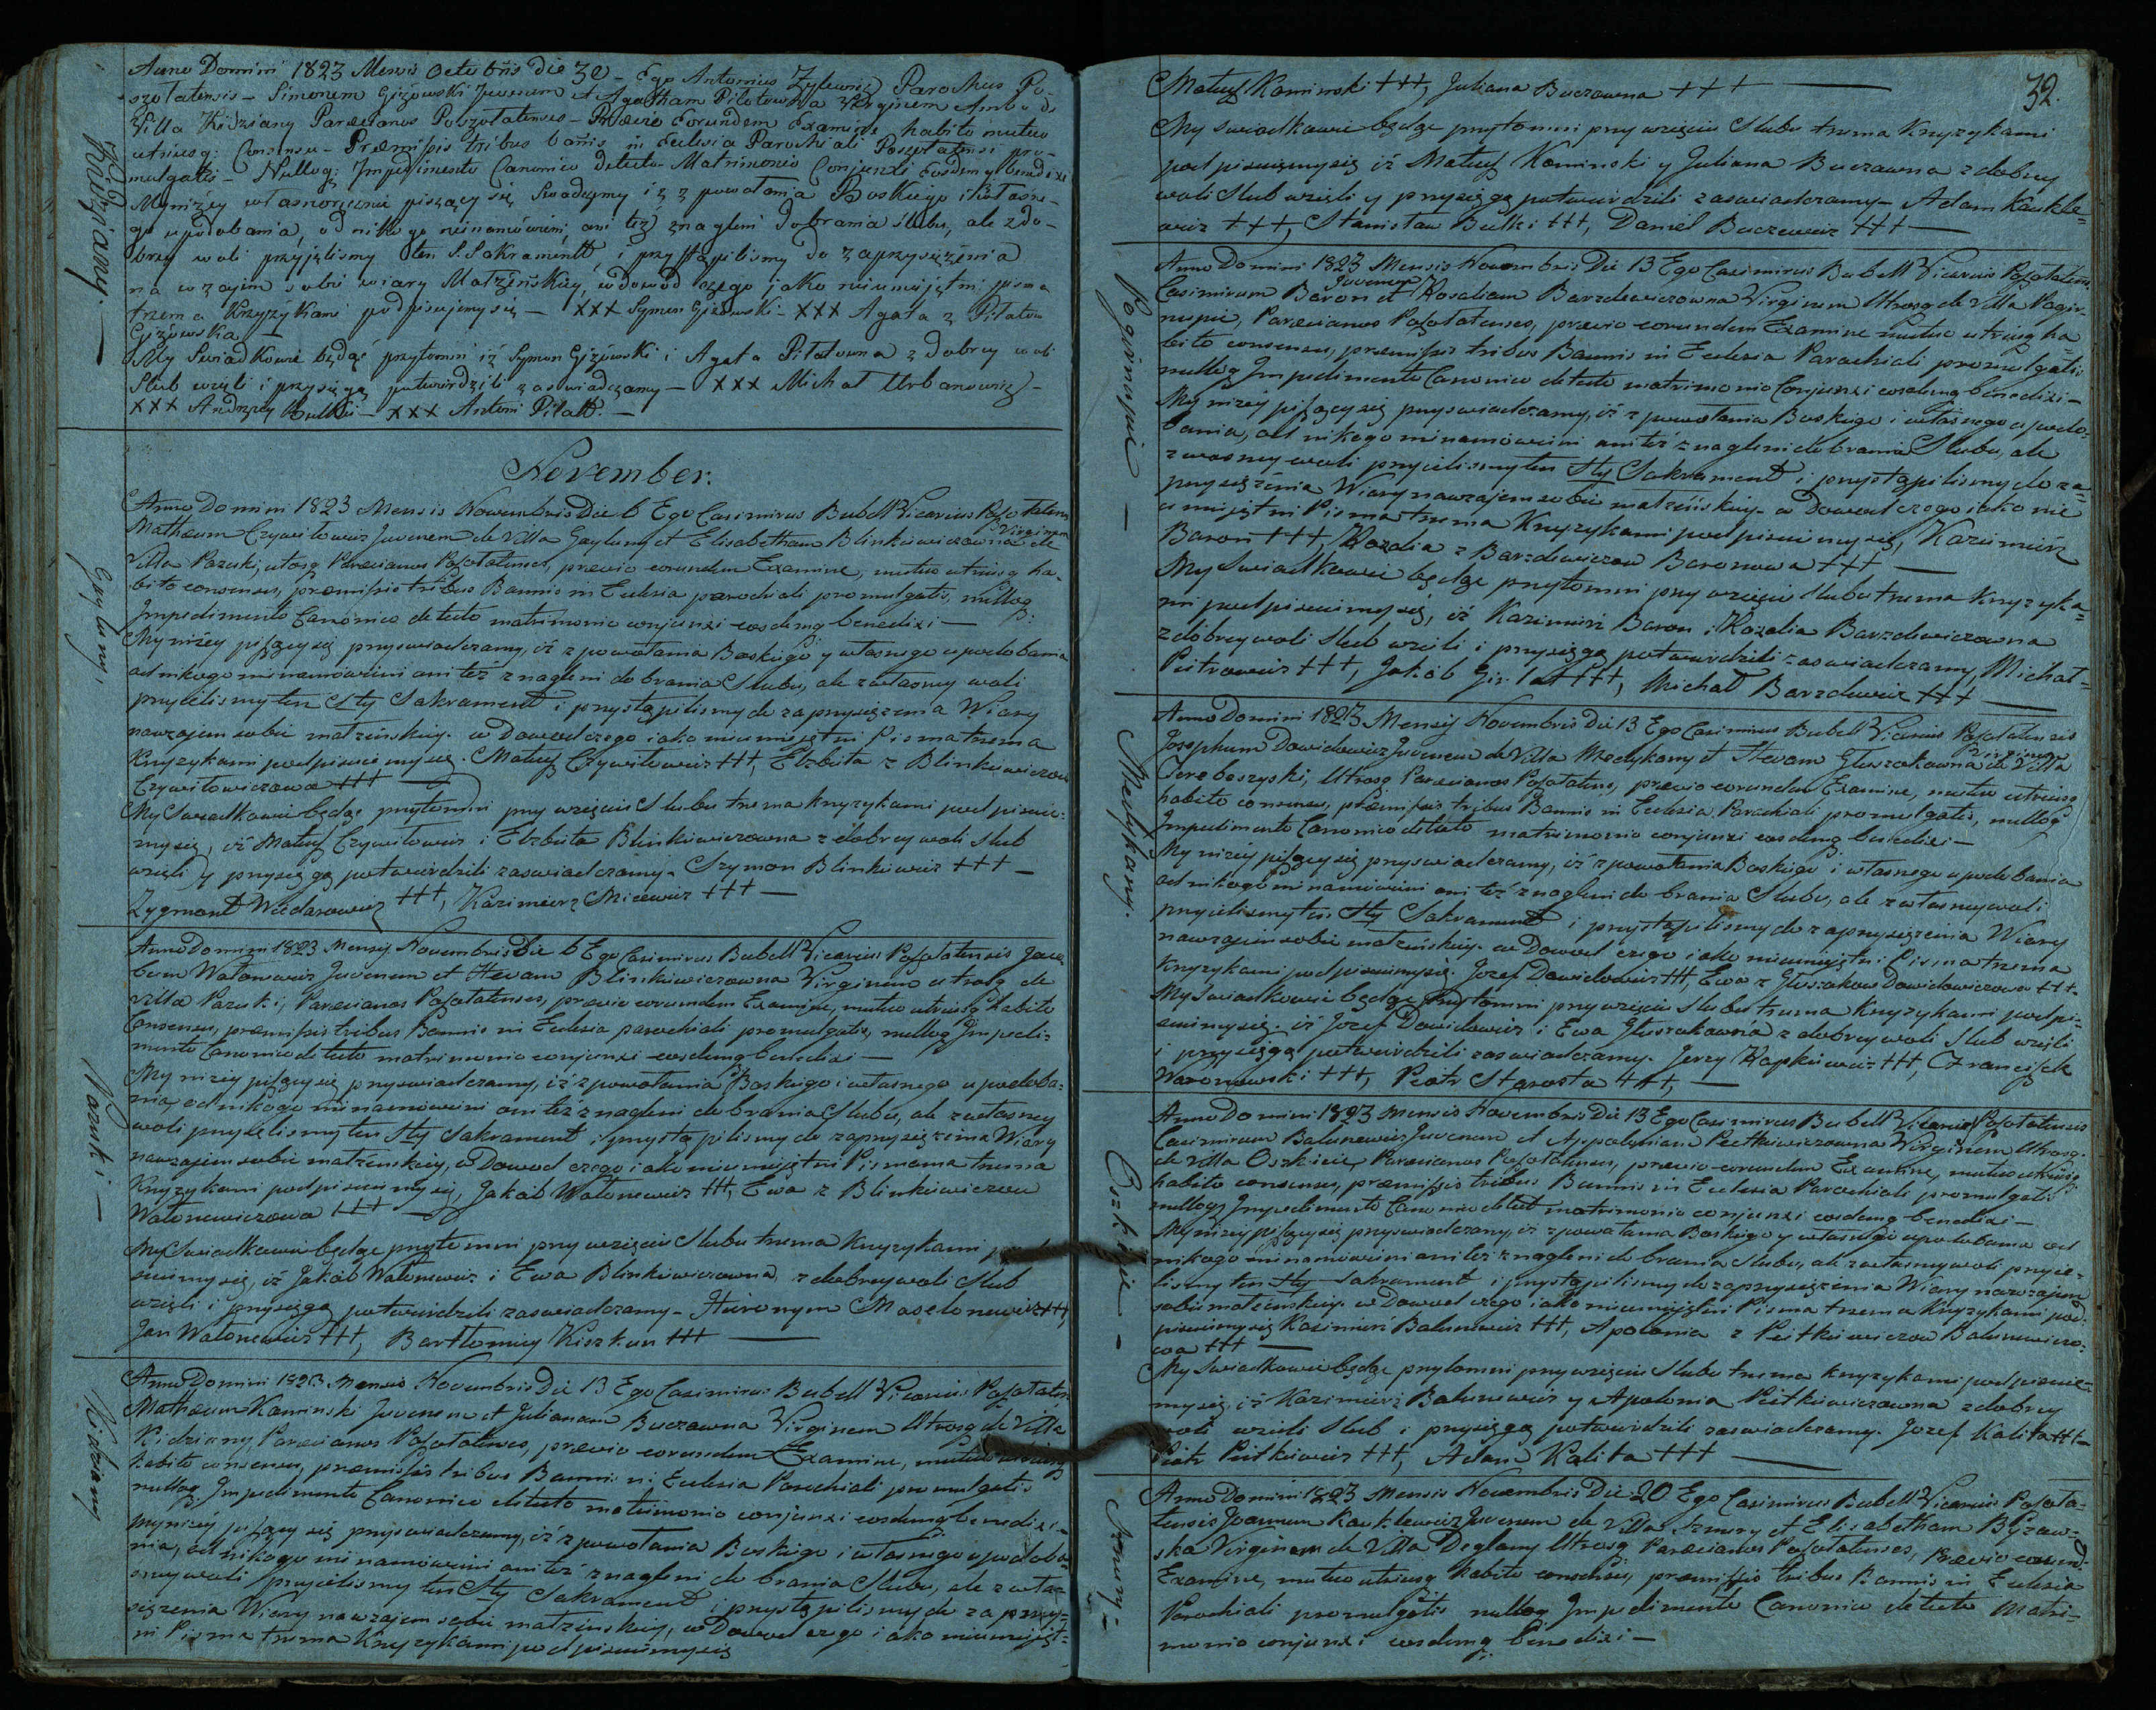 Anno Domini 1823 Mensis Octobris Die 30 - Ego Antonius Zylewicz Parochus Po-
szolatensis - Simonem Giżowski Juvenem et Agatham Pilotowna Virginem Ambo de
Villa Kidziany Paroecianos Poszolatenses - Praevio Eorundem Examine habito mutuo
utriusq: Consensu - Praemissis tribus bañis in Ecclesia Parochiali Poszolatensi pro-
mulgatis - Nulloq; Impedimento Canonico detecto - Matrimonio Conjunxi Eosdemq benedixi
My niżey własnoręcznie piszący się swiadczymy iż z powołania Boskiego i własne-
go upodobania, od nikogo nienamówieni, ani też znagleni do brania slubu, ale z do-
brey woli przyjęlismy ten S. Sakramentt, i przystąpilismy do zaprzysiężenia
na wzajem sobie wiary Małżeńskiey, w dowód czego jako nieumiejętni pisma
trzema Krzyżykami podpisujemy się - XXX Symon Giżowski - XXX Agata z Pilatow
Giżowska
My Swiadkowie będąc przytomni iż Symon Giżowski i Agata Pilatowna z dobrey woli
Slub wzięli i przysięgą potwierdzili zaswiadczamy - XXX Michał Urbanowicz -
XXX Andrzey Butki - XXX Antoni Pilatt. -
Kidziany. -
November.
Anno Domini 1823 Mensis Novembris Die 6 Ego Casimirus Bubell Vicarius Poszolatens
Virginem
Mathaeum Czywitowicz Juvenem de Villa Gayluny et Elisabetham Blinkiewiczowna de
Villa Pazuki, utrosq Paroecianos Poszolatenses, praevio eorundem Examine, mutuo utriusq ha-
bito consensu, praemissis tribus Bannis in Ecclesia parochiali promulgatis, nulloq
Impedimento Canonico detecto matrimonio conjunxi eosdemq benedixi -
My niżey piszący się przyswiadczamy, iż z powołania Boskiego y własnego upodobania
od nikogo nie namówieni ani też znagleni do brania Slubu, ale z własney woli
przyielismy ten Sty Sakrament i przystąpilismy do zaprzysiężenia Wiary
nawzajem sobie małżeńskiey. w Dowod czego iako nieumieiętni Pisma trzema
Krzyżykami podpisuiemy się. Mateusz Czywitowicz +++, Elzbieta z Blinkiewiczow
Czywitowiczowa +++ -
My Swiadkowie będąc przytomni przy wzięciu Slubu trzema krzyżykami podpisuie-
my się, iż Mateusz Czywitowicz i Elzbieta Blinkiewiczowna z dobrey woli slub
wzięli y przysięgą potwierdzili zaswiadczamy - Szymon Blinkiewicz +++ -
Zygmont Wiedarowicz +++, Kazimierz Micewicz +++ -
Gayluny,
Anno Domini 1823 Mensis Novembris Die 6 Ego Casimirus Bubell Vicarius Poszolatensis Jaco-
bum Watonowicz Juvenem et Hevam Blinkiewiczowna Virginem utrosq de
villa Pazuki, Paroecianos Poszolatenses, praevio eorundem Examine, mutuo utriusq habito
Consensu, praemissis tribus Bannis in Ecclesia parochiali promulgatis, nulloq Impedi-
mento Canonico detecto matrimonio conjunxi eosdemq benedixi -
My niżey piszący się przyswiadczamy, iż z powołania Boskiego i własnego upodoba-
nia, od nikogo nie namówieni ani też znagleni do brania Slubu, ale z własney
woli przyięlismy ten Sty Sakrament i przystąpilismy do zaprzysiężenia Wiary
nawzajem sobie małżeńskiey, w Dowod czego iako nieumieiętni Pisma trzema
Krzyżykami podpisuiemy się, Jakób Watonewicz +++, Ewa z Blinkiewiczow
Watonewiczowa +++ -
My Swiadkowie będąc przytomni przy wzięciu Slubu trzema Krzyżykami
suiemy się, iż Jakób Watonewicz i Ewa Blinkiewiczowna, z dobrey woli Slub
wzięli i przysięgą potwierdzili zaswiadczamy - Hieronym Maselonewicz +++,
Jan Watonewicz +++, Bartłomiey Kiszkun +++ -
Pazuki -
Anno Domini 1823 Mensis Novembris Die 13 Ego Casimirus Bubell Vicarius Poszolatens
Mathaeum Kaminski Juvenem et Julianam Buczowna Virginem Utrosq de Villa
Kidziany, Paroecianos Poszolatenses, praevio eorundem Examine, mutuo utriusq
habito consensu, praemissis tribus Bannis in Ecclesia Parochiali promulgatis
nulloq Impedimento Canonico detecto matrimonio conjunxi eosdemq benedixi -
My niżey piszący się przyswiadczamy, iż z powołania Boskiego i własnego upodoba-
nia, od nikogo nie namówieni ani też znagleni do brania Slubu, ale z włas-
ney woli przyielismy ten Sty Sakrament i przystąpilismy do zaprzy-
siężenia Wiary nawzajem sobie małżeńskiey, w Dowod czego iako nieumieięt-
ni Pisma trzema Krzyżykami podpisuiemy się
Kidziany
32.
Mateusz Kaminski +++, Juliana Buczowna +++ -
My swiadkowie będąc przytomni przy wzięciu Slubu trzema Krzyżykami
podpisuiemy się iż Mateusz Kominski y Juliana Buczowna z dobrey
woli Slub wzięli y przysięgą potwierdzili zaswiadczamy - Adam Kaukle-
wicz +++, Stanisław Butki +++, Daniel Buczewicz +++ -
Anno Domini 1823 Mensis Novembris Die 13 Ego Casimirus Bubell Vicarius Poszolatens.
Juvenem
Casimirum Baron et Rosaliam Barzdewiczowna Virginem Utrosq de Villa Pogir-
nupie, Paroecianos Poszolatenses, praevio eorundem Examine mutuo utriusq ha-
bito consensu, praemissis tribus Bannis in Ecclesia Parochiali promulgatis
nulloq Impedimento Canonico detecto matrimonio Conjunxi eosdemq benedixi -
My niżey piszący się przyswiadczamy, iż z powołania Boskiego i własnego upodo-
bania, od nikogo nie namówieni ani też znagleni do brania Slubu, ale
z własney woli przyielismy ten Sty Sakrament i przystąpilismy do za-
przysiężenia Wiary nawzajem sobie małżeńskiey - w Dowod czego iako nie
umieiętni Pisma trzema Krzyżykami podpisuiemy się, Kazimierz
Baron +++, Rozalia z Barzdewiczow Baronowa +++ -
My Swiadkowie będąc przytomni przy wzięciu Slubu trzema Krzyżyka-
mi podpisuiemy się, iż Kazimierz Baron i Rozalia Barzdewiczowna
z dobrey woli Slub wzieli i przysięgą potwierdzili zaswiadczamy, Michał
Piotrowicz +++, Jakób +++, Michał Barzdewicz +++ -
Pogirnupie -
Anno Domini 1823 Mensis Novembris Die 13 Ego Casimirus Bubell Vicarius Poszolatensis
Virginem
Josephum Dowidowicz Juvenem de Villa Medykany et Hevam Głuszakowna de Villa
Jereboszyski, Utrosq Paroecianos Poszolatens, praevio eorundem Examine, mutuo utriusq
habito consensu, praemissis tribus Bannis in Ecclesia Parochiali promulgatis, nulloq
Impedimento Canonico detecto matrimonio conjunxi eosdemq benedixi -
My niżey piszący się przyswiadczamy, iż z powołania Boskiego i własnego upodobania
od nikogo nie namówieni ani też znagleni do brania Slubu, ale z własney woli
przyielismy ten Sty Sakrament i przystąpilismy do zaprzysiężenia Wiary
nawzajem sobie małżeńskiey. w Dowod czego iako nieumieiętni Pisma trzema
Krzyżykami podpisuiemy się. Jozef Dowidowicz +++, Ewa z Głuszakow Dowidowiczowa +++.
My swiadkowie będąc przytomni przy wzięciu Slubu trzema Krzyżykami podpi-
suiemy się. iż Jozef Dowidowicz i Ewa Głuszakowna z dobrey woli Slub wzięli
i przysięgą potwierdzili zaswiadczamy. Jerzy Hopkiewicz +++, Franciszek
Woronowski +++, Piotr Starosta +++, -
Medykany.
Anno Domini 1823 Mensis Novembris Die 13 Ego Casimirus Bubell Vicarius Poszolatensis
Casimirum Balunewicz Juvenem et Appoloniam Pietkiewiczowna Virginem Utrosq.
de Villa Oszkicie, Paroecianos Poszolatenses, praevio eorundem Examine, mutuo utriusq
habito consensu, praemissis tribus Bannis in Ecclesia Parochiali promulgatis
nulloq Impedimento Canonico detecto matrimonio conjunxi eosdemq benedixi -
My niżey piszący się przyswiadczamy, iż z powołania Boskiego y własnego upodobania od
nikogo nie namówieni ani też znagleni do brania Slubu, ale z własney woli przyie-
lismy ten Sty Sakrament i przystąpilismy do zaprzysiężenia Wiary nawzajem
sobie małżeńskiey. w Dowod czego iako nieumieiętni Pisma trzema Krzyżykami pod-
pisuiemy się Kazimierz Balunewicz +++, Apolonia z Pietkiewiczow Balunewiczo-
wa +++ -
My Swiadkowie będąc przytomni przy wzięciu Slubu trzema krzyżykami podpisuie-
my się, iż Kazimierz Balunewicz y Apolonia Pietkiewiczowna z dobrey
woli wzieli Slub i przysięgą potwierdzili zaswiadczamy. Jozef Kalita +++ -
Piotr Pietkiewicz +++, Adam Kalita +++ -
Oszkicie -
Anno Domini 1823 Mensis Novembris Die 20 Ego Casimirus Bubell Vicarius Poszola-
tensis Joannem Kauklewicz Juvenem de Villa Sznury et Elisabetham Byzow-
ska Virginem de Villa Deglany Utrosq Paroecianos Poszolatenses, Praevio eorund.
Examine, mutuo utriusq habito consensu, praemissis tribus Bannis in Ecclesia
Parochiali promulgatis nulloq Impedimento Canonico detecto Matri-
monio conjunxi eosdemq benedixi -
Sznury -